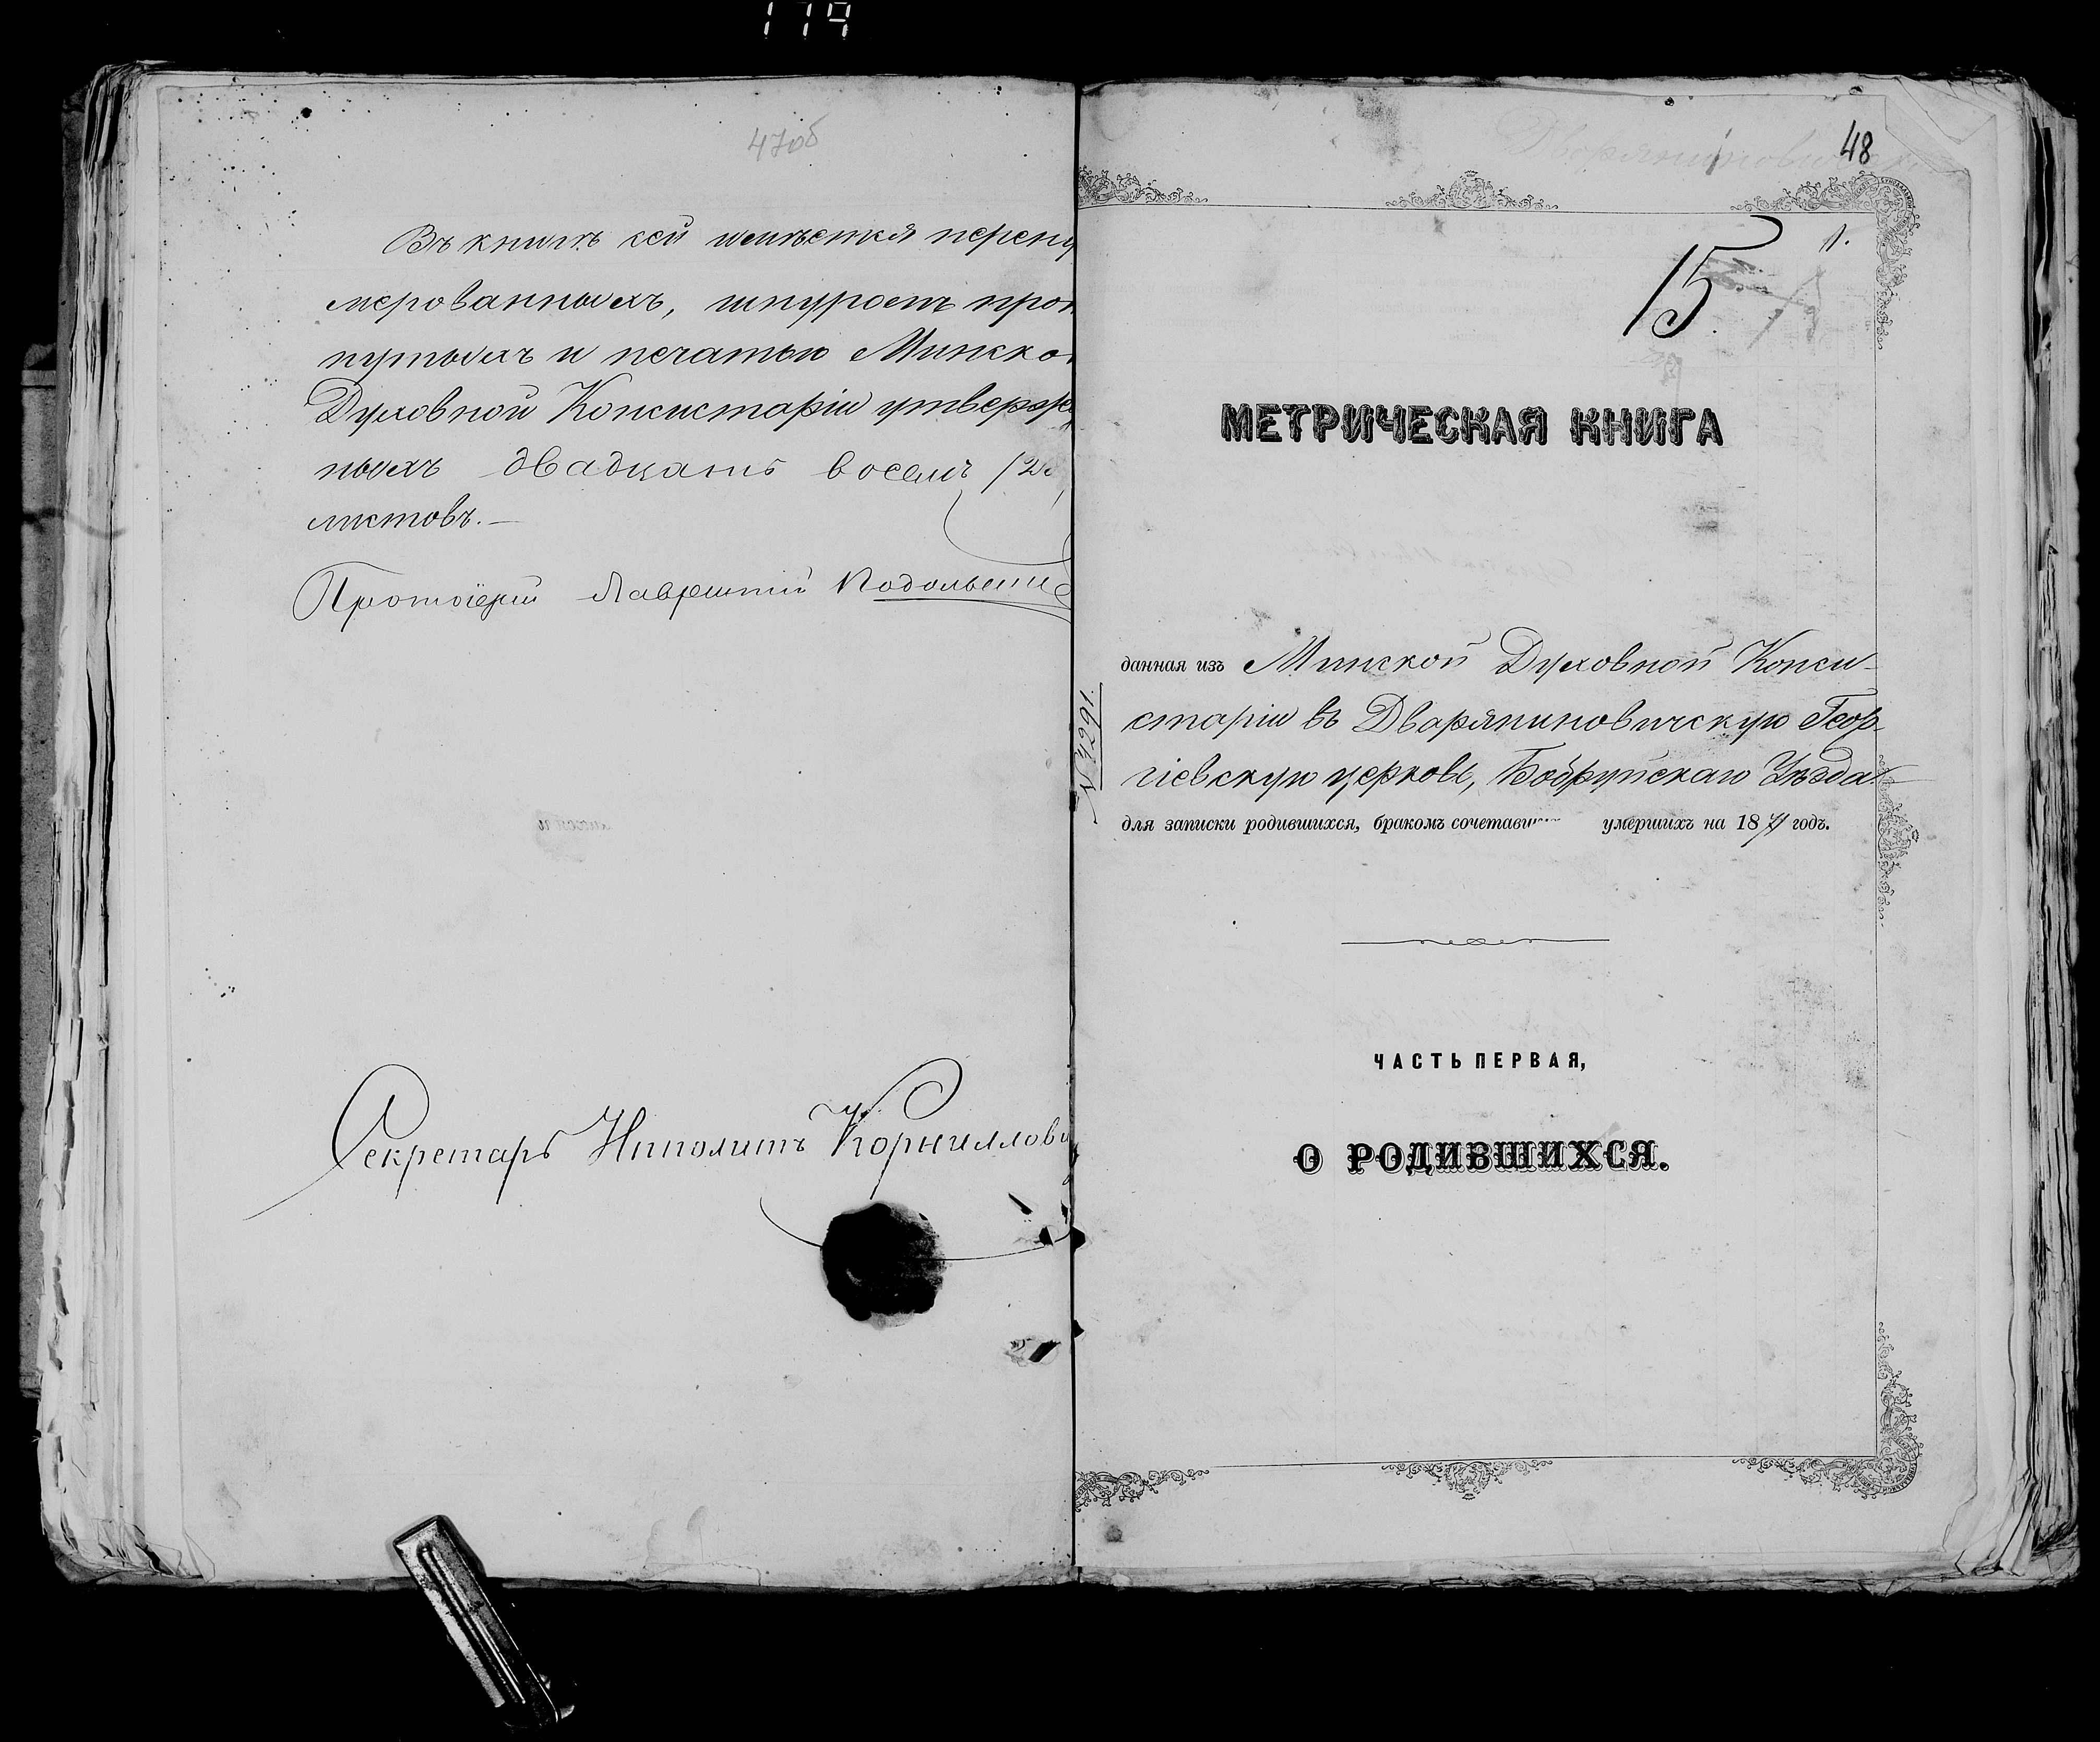 119
47об
Въ книгѣ сей имѣется перену
мерованныхъ, шнуромъ прот
нутыхъ и печатью Минско
Духовной Консисторіи утвержд
ныхъ двадцать восемь /28
листовъ.—
Протоіерей Лаврентій Подольскі
Секретарь Ипполитъ Корниллови
48
1.
15
МЕТРИЧЕСКАЯ КНИГА
данная изъ Минской Духовной Конси-
сторіи въ Дворяниновичскую Геор-
гіевскую церковь, Бобруйскаго Уѣзда
для записки родившихся, бракомъ сочетавш умершихъ на 1871 годъ.
№ 4291.
ЧАСТЬ ПЕРВАЯ,
О РОДИВШИХСЯ.